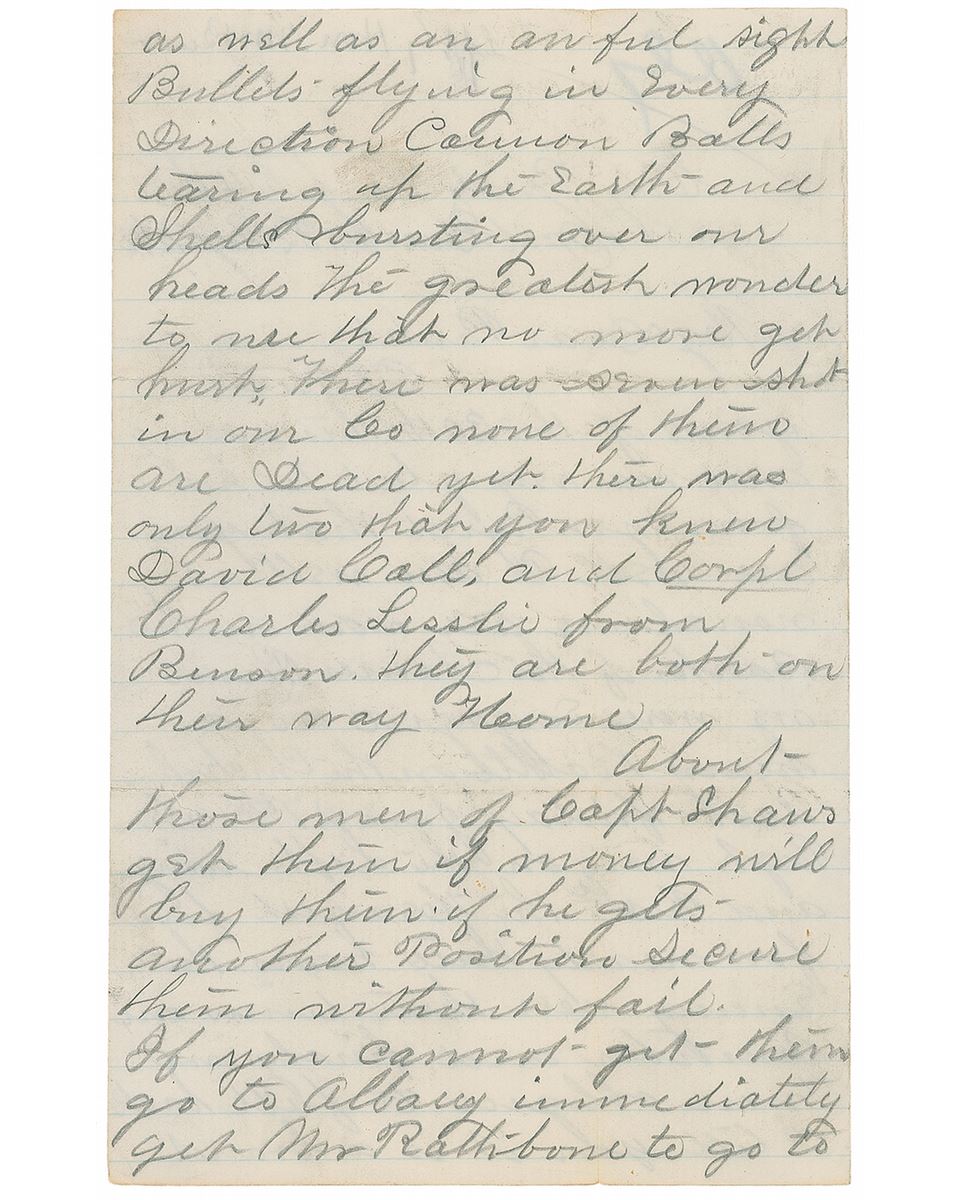 as well as an awful sight
Bullets flying in Every
Direction Cannon Balls
tearing up the Earth and
Shells bursting over our
heads The greatest wonder
to me that no more get
hurt, There was seven shot
in our Co none of them
are Dead yet. there was
only two that you knew
David Call, and Corpl
Charles Lesslie from
Benson. they are both on
their way Home
About
those men of Capt Shaws
get them if money will
buy them. if he gets
another Position Secure
them without fail.
If you cannot get them
go to Albany immediately
get Mr Rathbone to go to